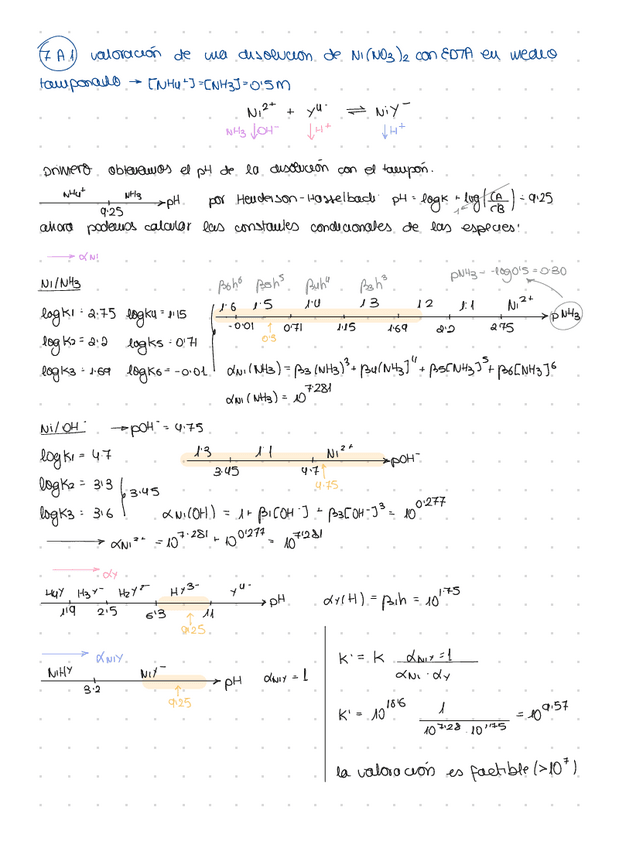 7.A.1 valoración de una disolución de Ni(NO3)2 con EDTA en medio
tamponado → [NH4+]=[NH3]=0'5M
Ni2+ + Y4- ⇌ NiY-
NH3 ↓OH- ↓H+ ↓H+
primero obtenemos el pH de la disolución con el tampón.
NH4+ NH3 → pH
9.25
por Henderson-Hasselbach pH = logK + log(CA/CB) = 9.25
ahora podemos calcular las constantes condicionales de las especies:
→ αNi
Ni/NH3
β6h6 β5h5 β4h4 β3h3 pNH3 = -log0'5 = 0.30
1·6 1·5 1·4 1·3 1·2 1·1 Ni2+ → pNH3
-0.01 0.71 1.15 1.69 2.2 2.75
0.3
logK1 = 2.75 logK4 = 1.15
logK2 = 2.2 logK5 = 0.71
logK3 = 1.69 logK6 = -0.01
αNi(NH3) = β3(NH3)3 + β4[NH3]4 + β5[NH3]5 + β6[NH3]6
αNi(NH3) = 10 7.281
Ni/OH- → pOH- = 4.75
logK1 = 4.7
logK2 = 3.3
logK3 = 3.6
3.45
1·3 1·1 Ni2+ → pOH-
3.45 4.7
4.75
αNi(OH) = 1 + β1[OH-] + β3[OH-]3 = 10 0'277
→ αNi2+ = 10 7.281 + 10 0'277 = 10 7'281
→ αY
H4Y H3Y- H2Y2- HY3- Y4- → pH
1.9 2.5 6.3 11
9.25
αY(H) = β1h = 10 1.75
→ αNiY
NiHY NiY- → pH
3.2
9.25
αNiY = 1
K' = K αNiY=1 / αNi · αY
K' = 10 18'6 1 / 10 7.28 · 10 1.75 = 10 9.57
la valoración es factible (>10 7)